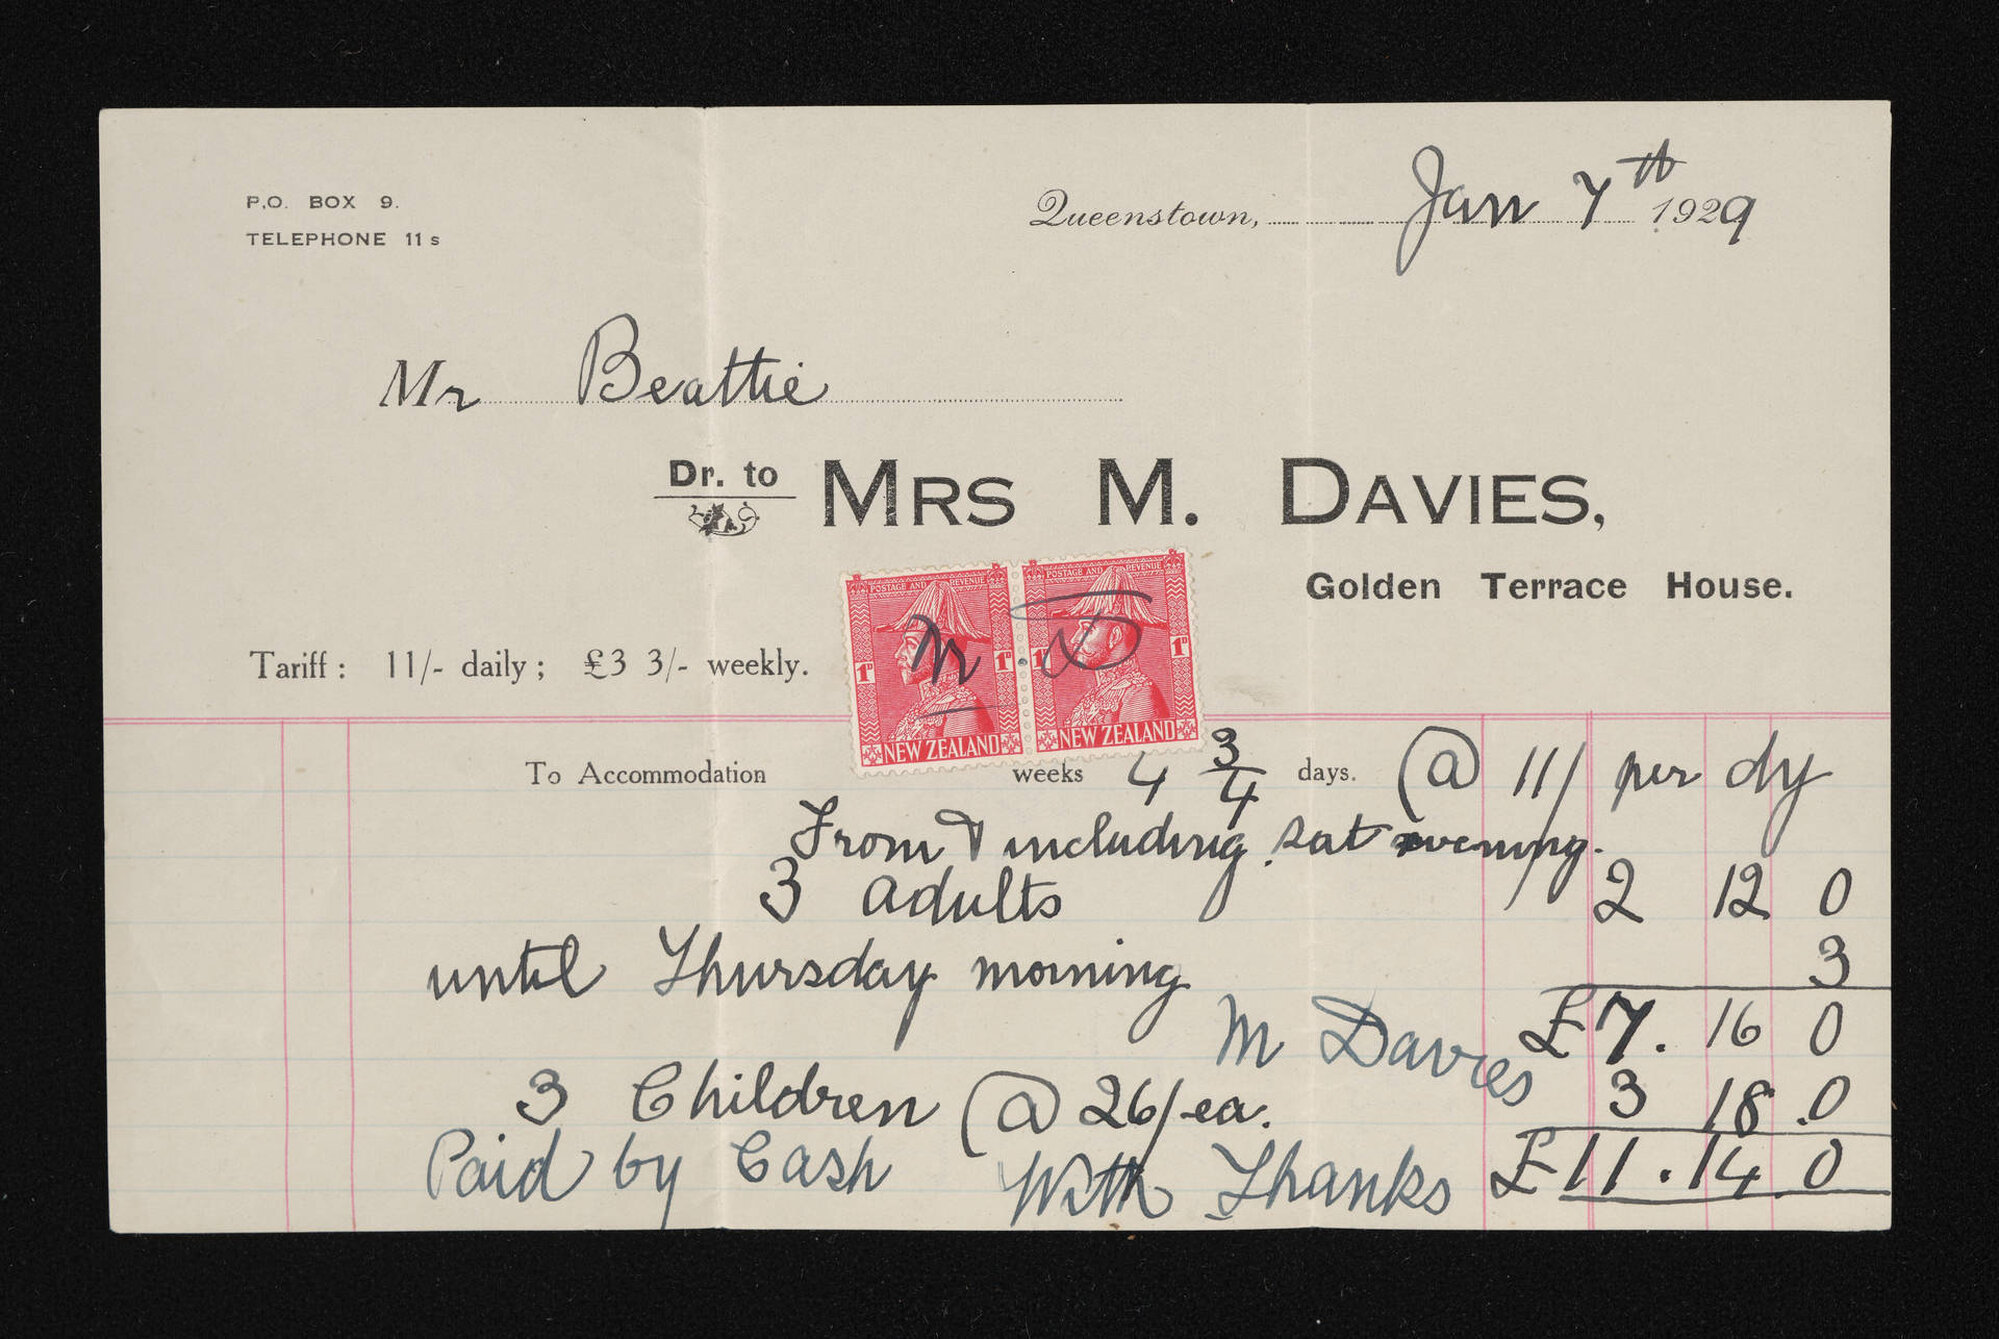 P.O. BOX 9.
TELEPHONE 11s
Queenstown, Jan 7th 1929
Mr Beattie
Dr. to MRS M. DAVIES,
Golden Terrace House.
Tariff: 11/- daily; £3 3/- weekly.
POSTAGE AND REVENUE
1D 1D
NEW ZEALAND
POSTAGE AND REVENUE
1D 1D
NEW ZEALAND
M. D
To Accommodation weeks 4 3/4 days. @ 11/ per dy
From & including sat evening.
3 adults 2 12 0
until Thursday morning 3
M Davies £7. 16 0
3 Children @ 26/ ea. 3 18.0
Paid by Cash With Thanks £11.14.0